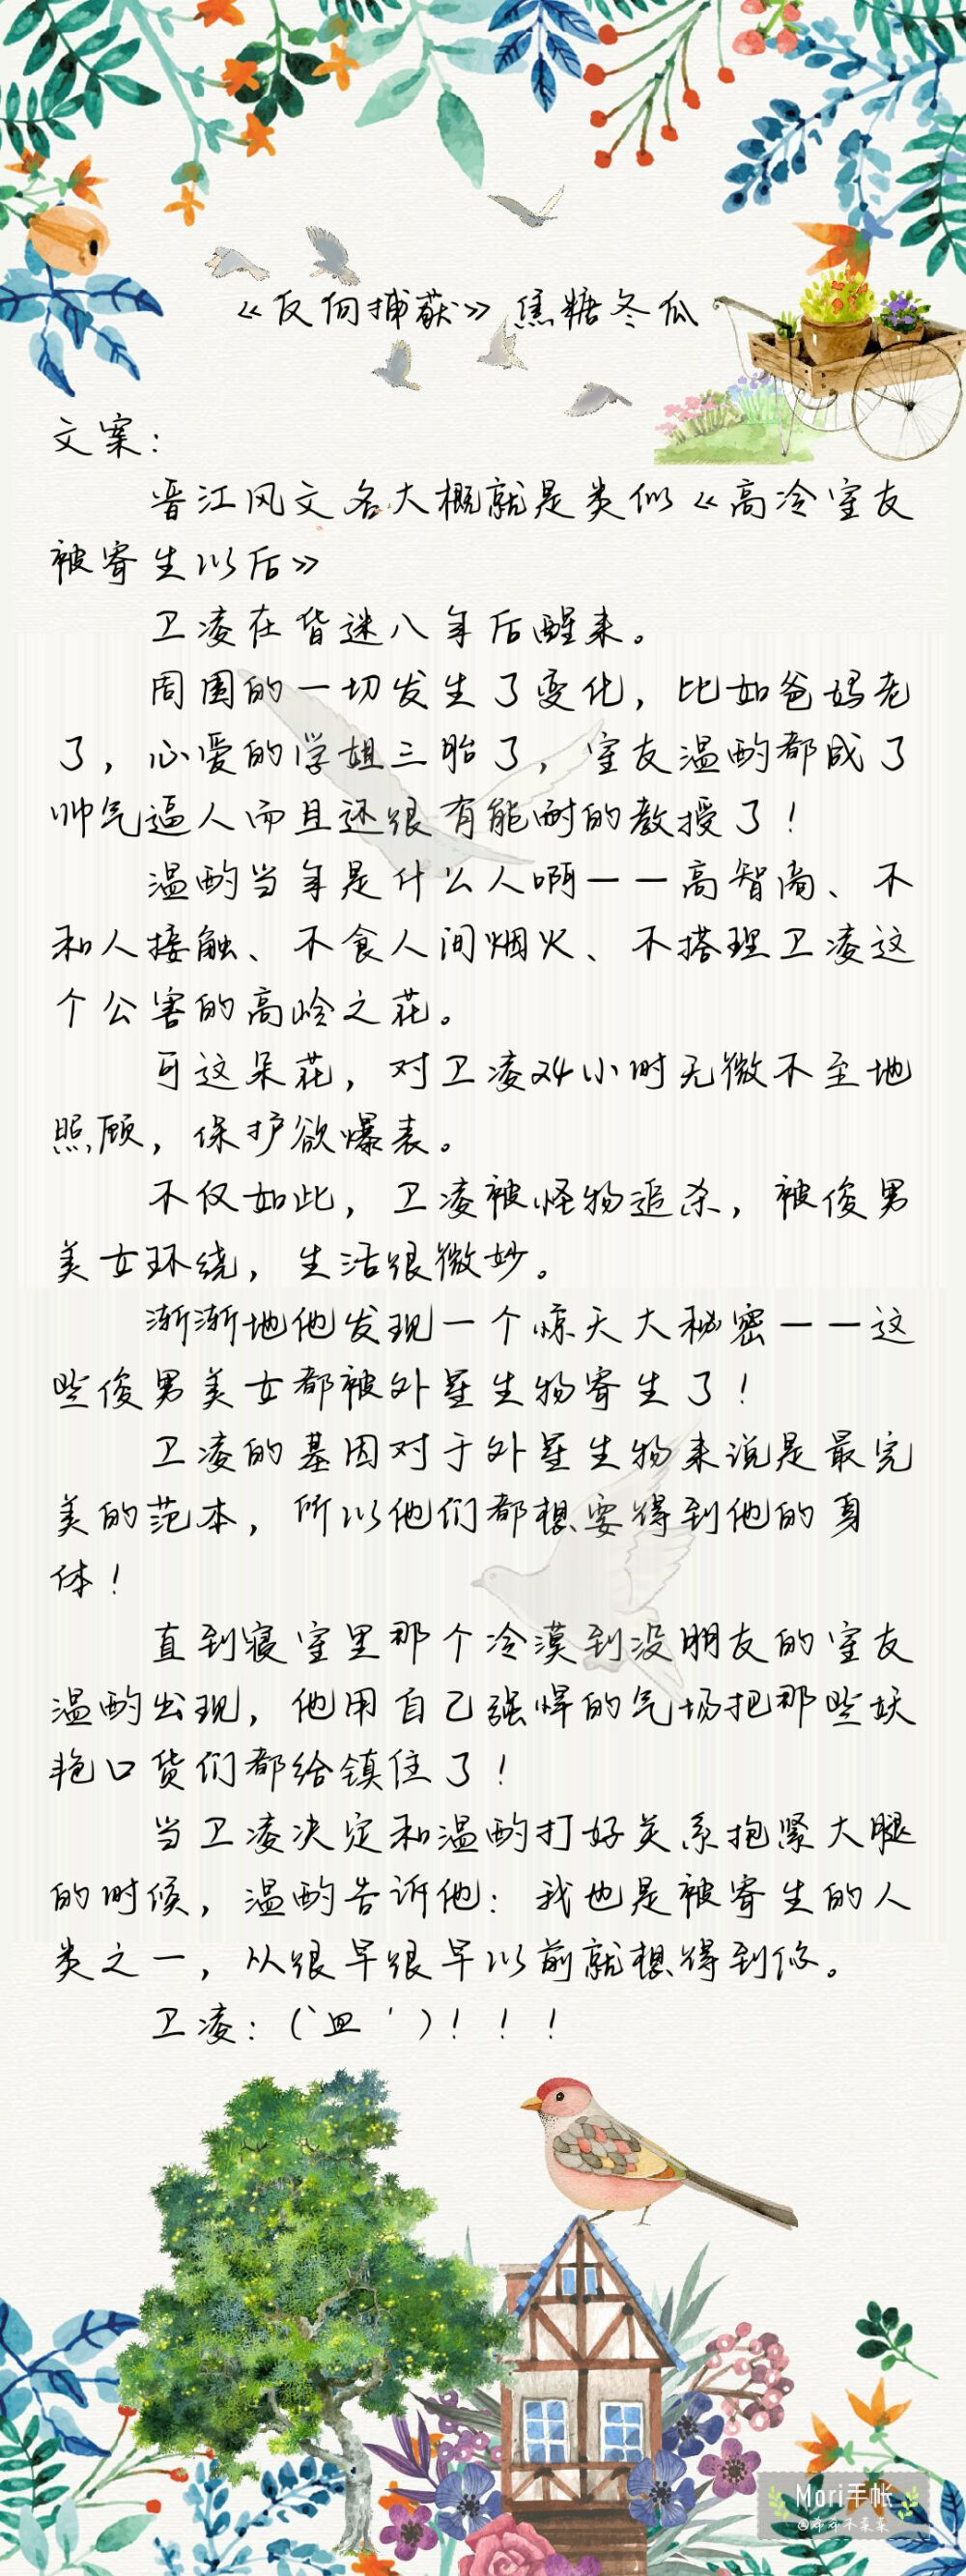 《反向捕获》焦糖冬瓜
文案：
晋江风文名大概就是类似《高冷室友
被寄生以后》
卫凌在昏迷八年后醒来。
周围的一切发生了变化，比如爸妈老
了，心爱的学姐三胎了，室友温酌都成了
帅气逼人而且还很有能耐的教授了！
温酌当年是什么人啊——高智商、不
和人接触、不食人间烟火、不搭理卫凌这
个公害的高岭之花。
可这朵花，对卫凌24小时无微不至地
照顾，保护欲爆表。
不仅如此，卫凌被怪物追杀，被俊男
美女环绕，生活很微妙。
渐渐地他发现一个惊天大秘密——这
些俊男美女都被外星生物寄生了！
卫凌的基因对于外星生物来说是最完
美的范本，所以他们都想要得到他的身
体！
直到寝室里那个冷漠到没朋友的室友
温酌出现，他用自己强悍的气场把那些妖
艳口货们都给镇住了！
当卫凌决定和温酌打好关系抱紧大腿
的时候，温酌告诉他：我也是被寄生的人
类之一，从很早很早以前就想得到你。
卫凌：(`皿′)！！！
Mori手帐